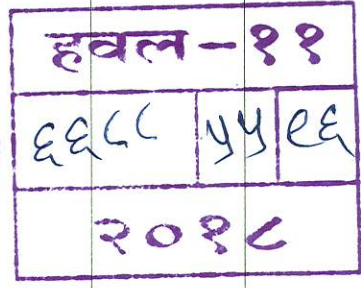 हवल-११
६६८८ ५५ ९६
२०१८